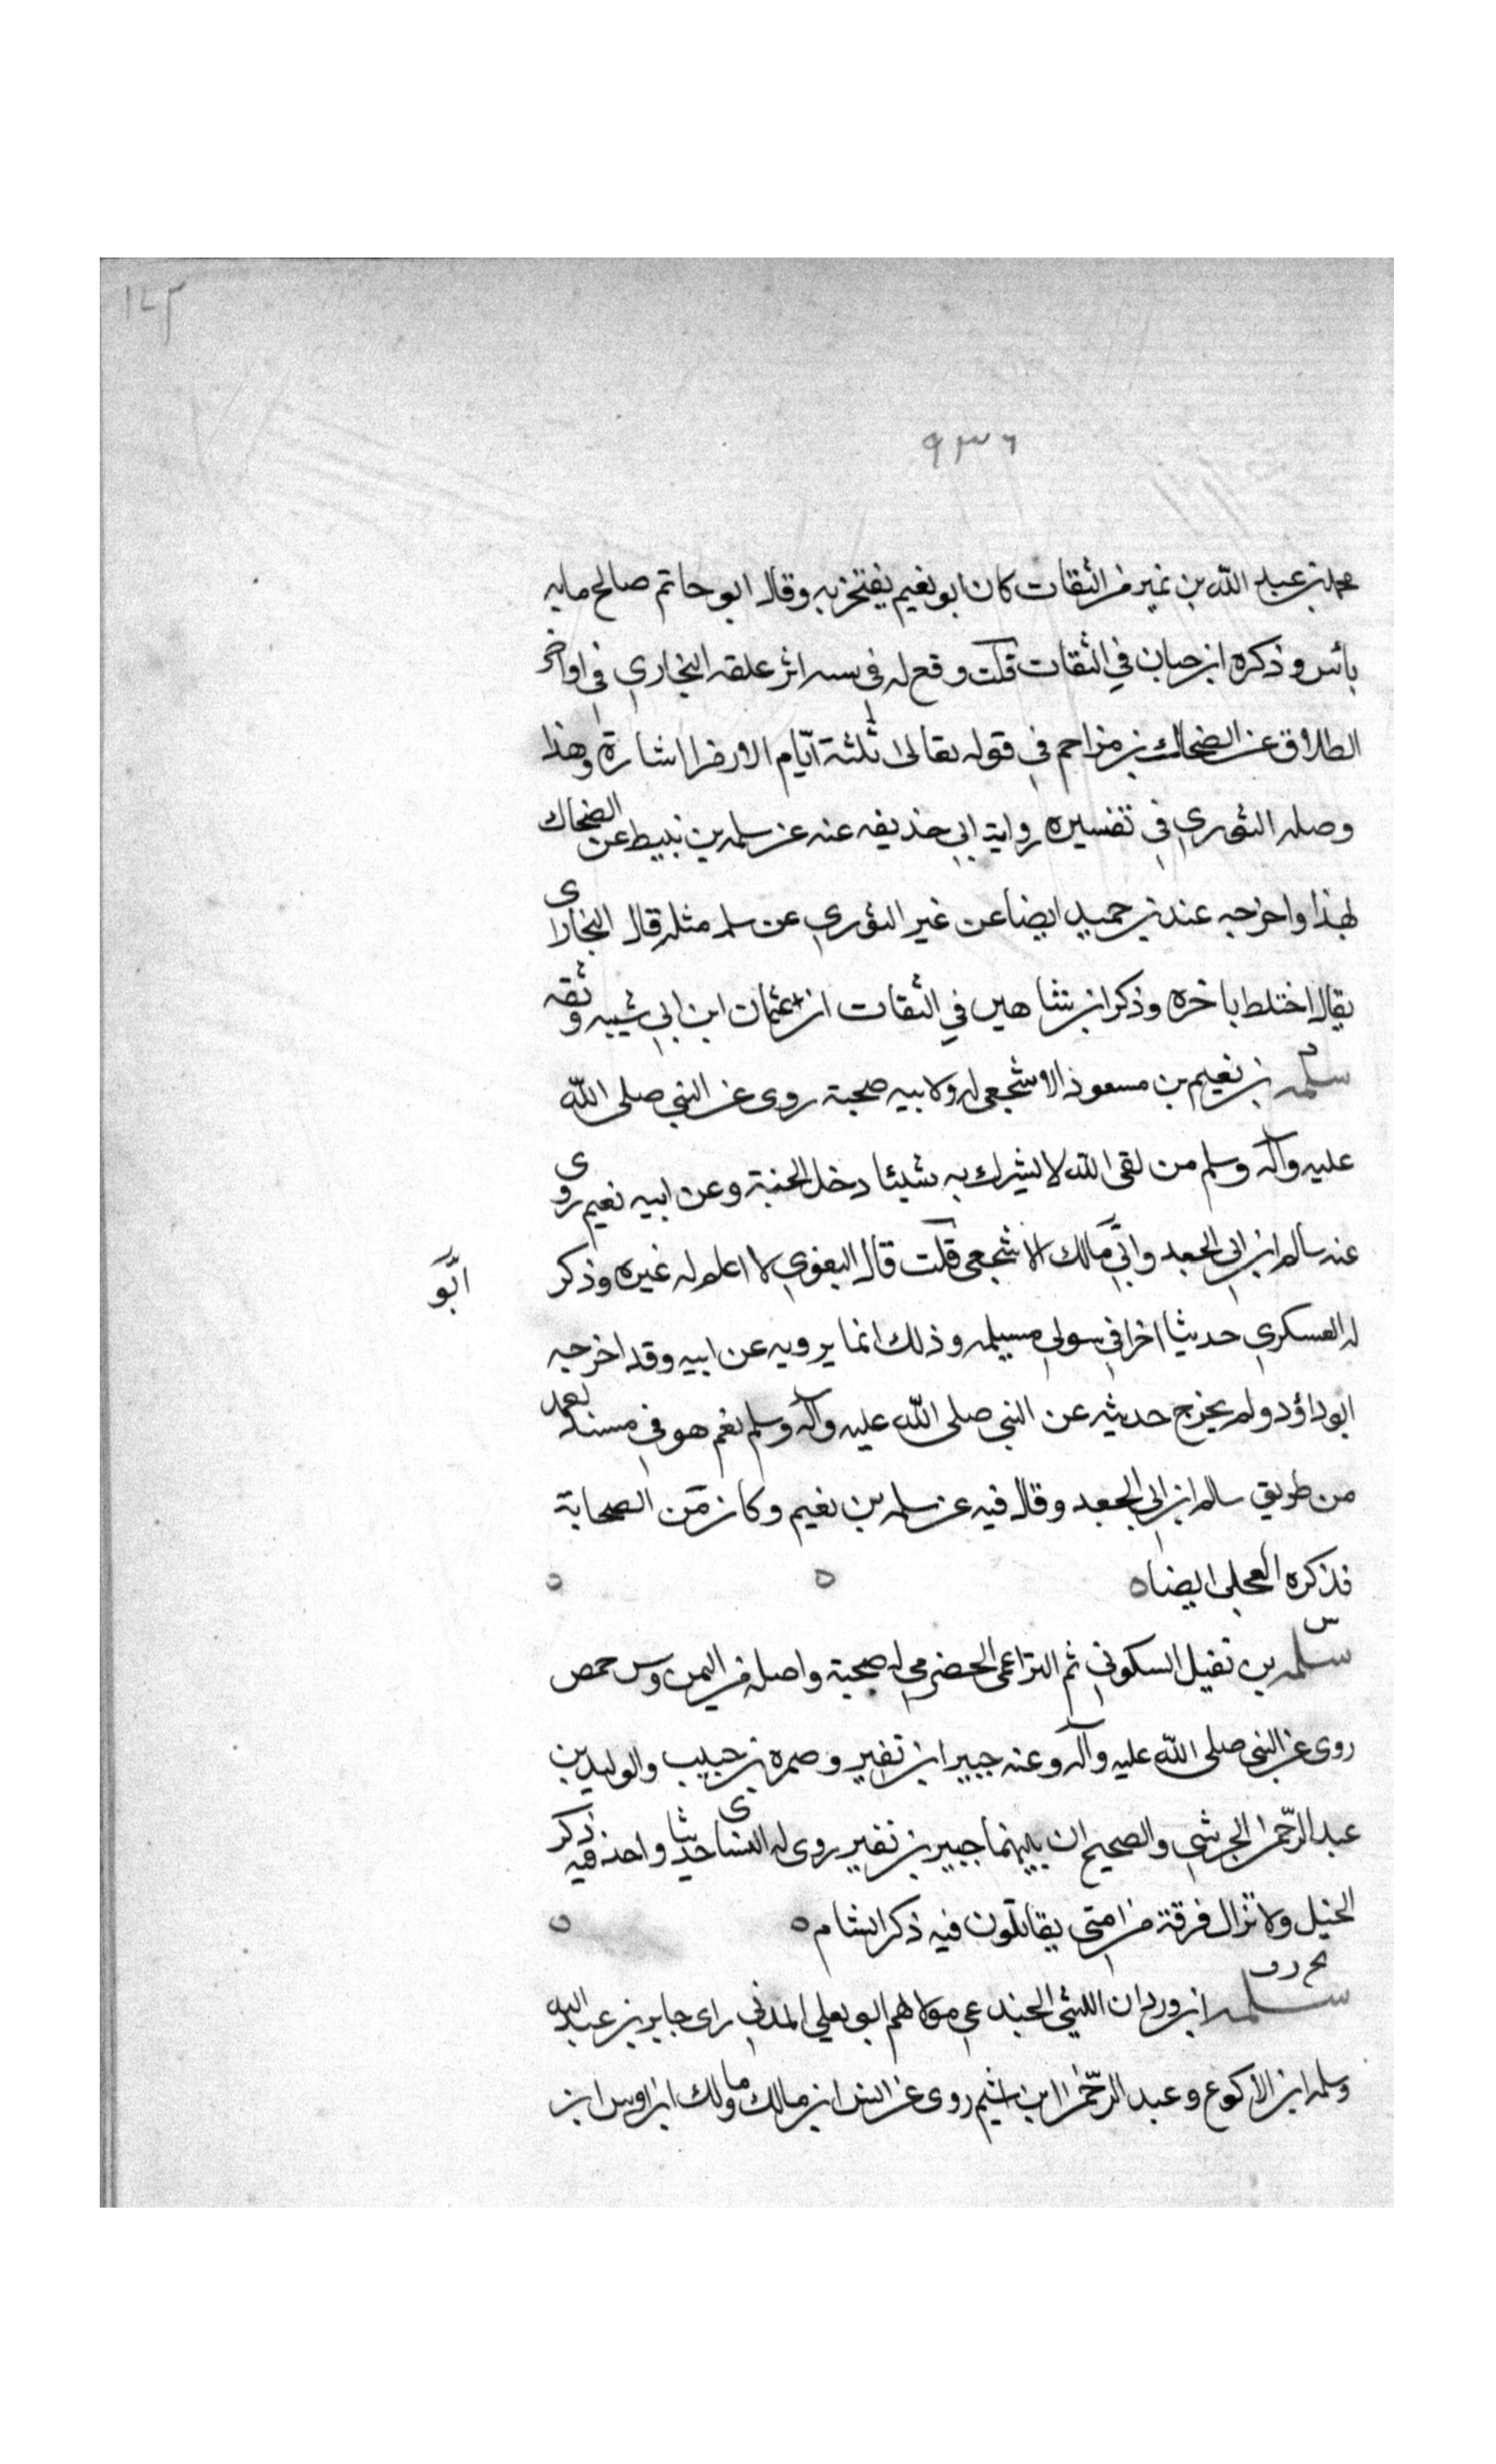 ١٤٣
٩٣٦
محمد بن عبد الله بن نمير من الثقات كان ابو نعيم يفتخر به وقال ابو حاتم صالح ما به
بأس وذكره ابن حبان في الثقات قلت وقع له في سه اثر علقه البخاري في اواخر
الطلاق عن الضحاك بن مزاحم في قوله تعالى ثلثة ايّام الا رمزا اشارة وهذا
وصله الثوري في تفسيره رواية ابي حذيفه عنه عن سلمه بن نبيط عن الضحاك
بهذا واخرجه عند بن حميد ايضا عن غير الثوري عن سلمه مثله قال البخاري
يقال اختلط باخره وذكر ابن شاهين في الثقات ان عثمان ابن ابي شيبه وثقه
سلمه بن نعيم بن مسعود الاشجعي له ولابيه صحبة روى عن النبي صلى الله
عليه وآله وسلم من لقى الله لا يشرك به شيئا دخل الجنة وعن ابيه نعيم روى
عنه سالم ابن ابي الجعد وابي مالك الاشجعي قلت قال البغوي لا اعلم له غيره وذكر
ابو
له العسكري حديثا اخر في رسولي مسيلمه وذلك انما يرويه عن ابيه وقد اخرجه
ابو داؤد ولم يخرج حديثه عن النبي صلى الله عليه وآله وسلم نعم هو في مسند احمد
من طريق سالم ابن ابي الجعد وقال فيه عن سلمه بن نعيم وكان من الصحابة
فذكره العجلي ايضا ه ه ه
س
سلمه بن نفيل السكوني ثم التراغمي الحضرمي له صحبة واصله من اليمن وس حمص
روى عن النبي صلى الله عليه وآله وعنه جبير ابن نفير وضمره بن حبيب والوليد بن
عبد الرّحمن الجرشي والصحيح ان بينهما جبير بن نفير روى له النساى حديثا واحد فيه ذكر
الخيل ولا تزال فرقة من امتي يقاتلون فيه ذكر الشام ه ه
سلمه ابن وردان الليثي الجندعي مولاهم ابو يعلي المدني راى جابر بن عبد الله
وسلمه ابن الاكوع وعبد الرّحمن ابن اشيم روى عن انس ابن مالك ومالك ابن اوس ابن